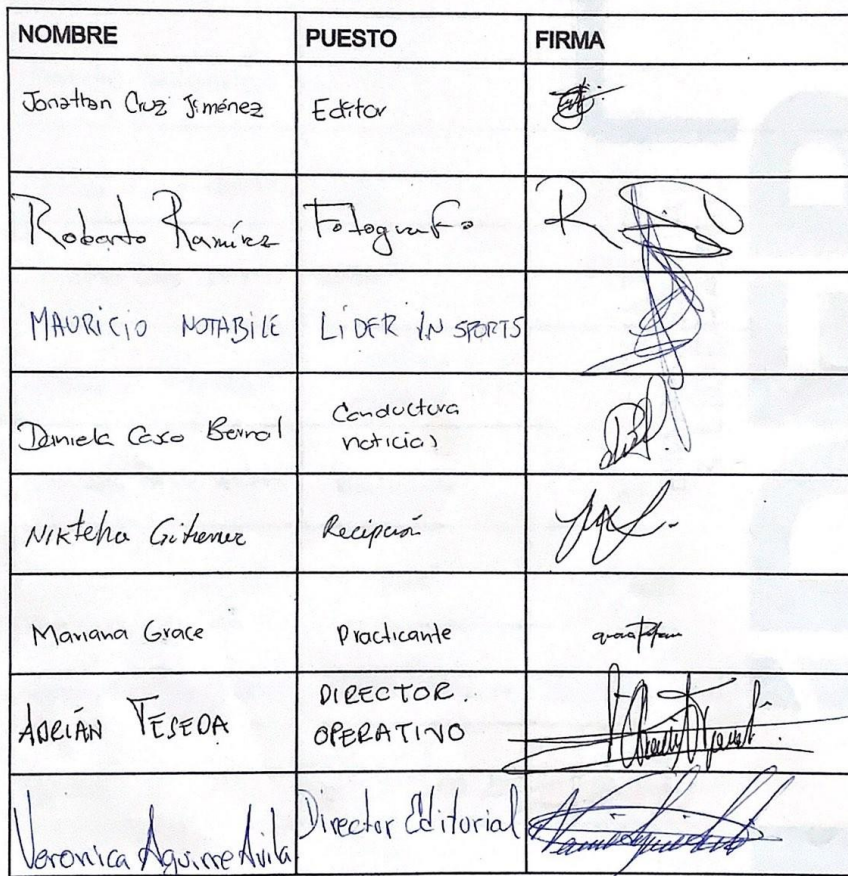 NOMBRE PUESTO FIRMA
Jonathan Cruz Jiménez Editor
Roberto Ramírez Fotografo
MAURICIO NOTABILE LiDER IN SPORTS
Daniela Caso Bernal Conductora
noticias
Nikteha Recipción
Mariana Grace Practicante
ADRIÁN TESEDA DIRECTOR
OPERATIVO
Veronica Aguirre Avila Director Editorial